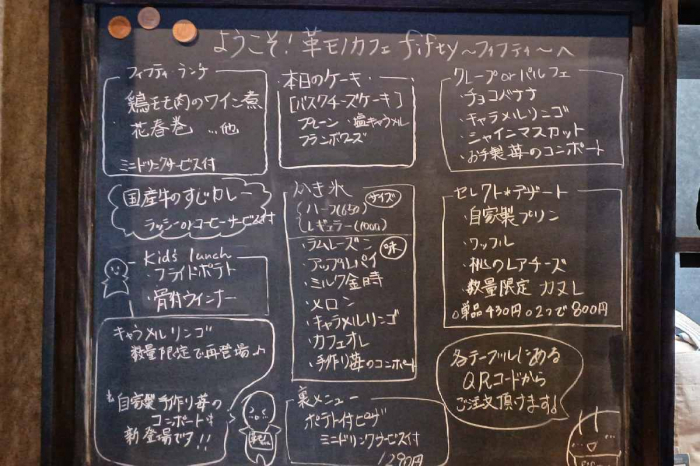 ようこそ！革モノカフェ fifty～フィフティ～へ
フィフティ・ランチ
鶏モモ肉のワイン煮
花春巻 …他
ミニドリンクサービス付
国産牛のすじカレー
ラッシーorコーヒーサービス付
Kids lunch
・フライドポテト
・骨付ウインナー
キャラメルリンゴ
数量限定で再登場♪
自家製手作り苺の
コンポートも
新登場です!!
本日のケーキ
[バスクチーズケーキ]
プレーン・塩キャラメル
フランボワーズ
かき氷
サイズ
ハーフ(650)
レギュラー(1000)
味
・ラムレーズン
・アップルパイ
・ミルク金時
・メロン
・キャラメルリンゴ
・カフェオレ
・手作り苺のコンポート
裏メニュー
ポテト付ピザ
ミニドリンクサービス付
1290円
クレープorパルフェ
・チョコバナナ
・キャラメルリンゴ
・シャインマスカット
・お手製苺のコンポート
セレクト*デザート
・自家製プリン
・ワッフル
・桃のレアチーズ
・数量限定 カヌレ
○単品430円○2つで800円
各テーブルにある
QRコードから
ご注文頂けます!